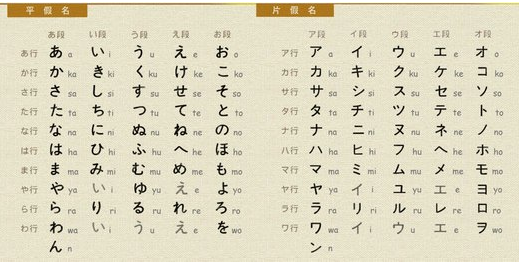 平 假 名 片 假 名
あ段 い段 う段 え段 お段 ア段 イ段 ウ段 エ段 オ段
あ行 あ a い i う u え e お o ア行 ア a イ i ウ u エ e オ o
か行 か ka き ki く ku け ke こ ko カ行 カ ka キ ki ク ku ケ ke コ ko
さ行 さ sa し si す su せ se そ so サ行 サ sa シ si ス su セ se ソ so
た行 た ta ち ti つ tu て te と to タ行 タ ta チ ti ツ tu テ te ト to
な行 な na に ni ぬ nu ね ne の no ナ行 ナ na ニ ni ヌ nu ネ ne ノ no
は行 は ha ひ hi ふ hu へ he ほ ho ハ行 ハ ha ヒ hi フ hu ヘ he ホ ho
ま行 ま ma み mi む mu め me も mo マ行 マ ma ミ mi ム mu メ me モ mo
や行 や ya い i ゆ yu え e よ yo ヤ行 ヤ ya イ i ユ yu エ e ヨ yo
ら行 ら ra り ri る ru れ re ろ ro ラ行 ラ ra リ ri ル ru レ re ロ ro
わ行 わ wa い i う u え e を wo ワ行 ワ wa イ i ウ u エ e ヲ wo
ん n ン n